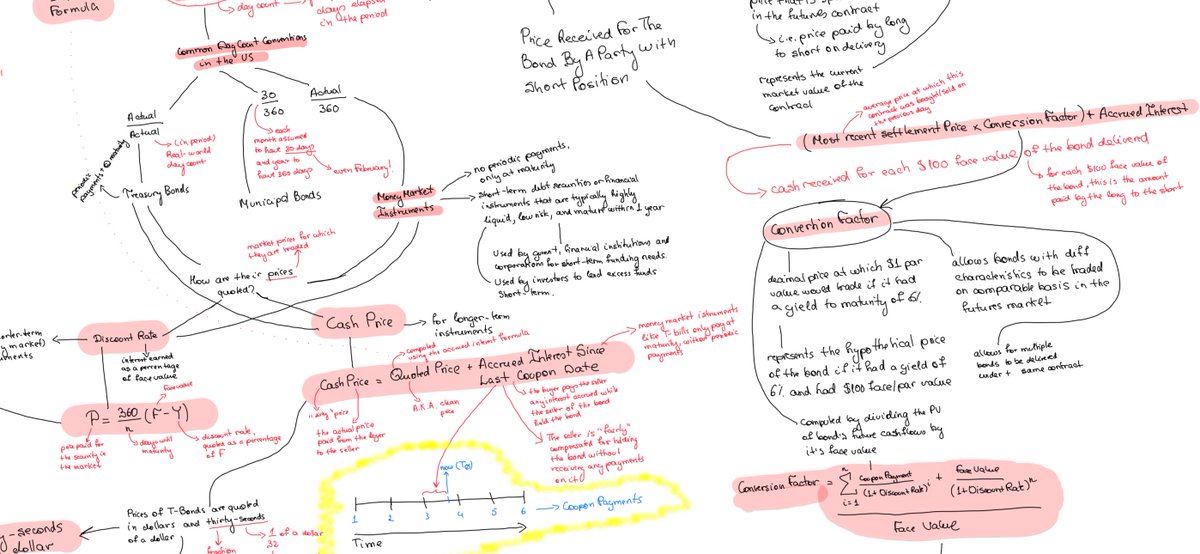 Formula
day count
days elapsed
in the period
Common Day Count Conventions
in the US
Actual
Actual
(in period)
Real-world
day count
periodic
payments + @ maturity
Treasury Bonds
30
360
each
month assumed
to have 30 days
and year to
have 360 days
even February!
Municipal Bonds
Actual
360
Money Market
Instruments
no periodic payments,
only at maturity
short-term debt securities or financial
instruments that are typically highly
liquid, low risk, and mature within 1 year
Used by gvmnt, financial institutions and
corporations for short-term funding needs.
Used by investors to lend excess funds
short-term.
market prices for which
they are traded
How are their prices
quoted?
Discount Rate
interest earned
as a percentage
of face value
Face value
P = 360/n (F-Y)
price paid for
the security in
the market
days until
maturity
discount rate,
quoted as a percentage
of F
Cash Price
for longer-term
instruments
computed
using the accrued interest formula
money market instruments
like T-bills only pay at
maturity, without periodic
payments
Cash Price = Quoted Price + Accrued Interest Since
Last Coupon Date
"dirty" price
the actual price
paid from the buyer
to the seller
A.K.A. clean
price
the buyer pays the seller
any interest accrued while
the seller of the bond
held the bond
The seller is "fairly"
compensated for holding
the bond without
receiving any payments
on it
now (T0)
1 2 3 4 5 6
Coupon Payments
Time
Prices of T-Bonds are quoted
in dollars and thirty-seconds
of a dollar
fraction
1/32 of a dollar
y-seconds
dollar
Price Received For The
Bond By A Party with
Short Position
in the futures contract
i.e. price paid by long
to short on delivery
represents the current
market value of the
contract
average price at which this
contract was bought/sold on
the previous day
(Most recent settlement Price x Conversion Factor) + Accrued Interest
cash received for each $100 face value of the bond delivered
for each $100 face value of
the bond, this is the amount
paid by the long to the short
Convertion Factor
decimal price at which $1 par
value would trade if it had
a yield to maturity of 6%
represents the hypothetical price
of the bond if it had a yield of
6% and had $100 face/par value
computed by dividing the PV
of bond's future cashflows by
it's face value
allows bonds with diff
characteristics to be traded
on comparable basis in the
futures market
allows for multiple
bonds to be delivered
under + same contract
Conversion Factor = n Σ i=1 Coupon Payment/(1+Discount Rate)^i + Face Value/(1+Discount Rate)^n
Face Value